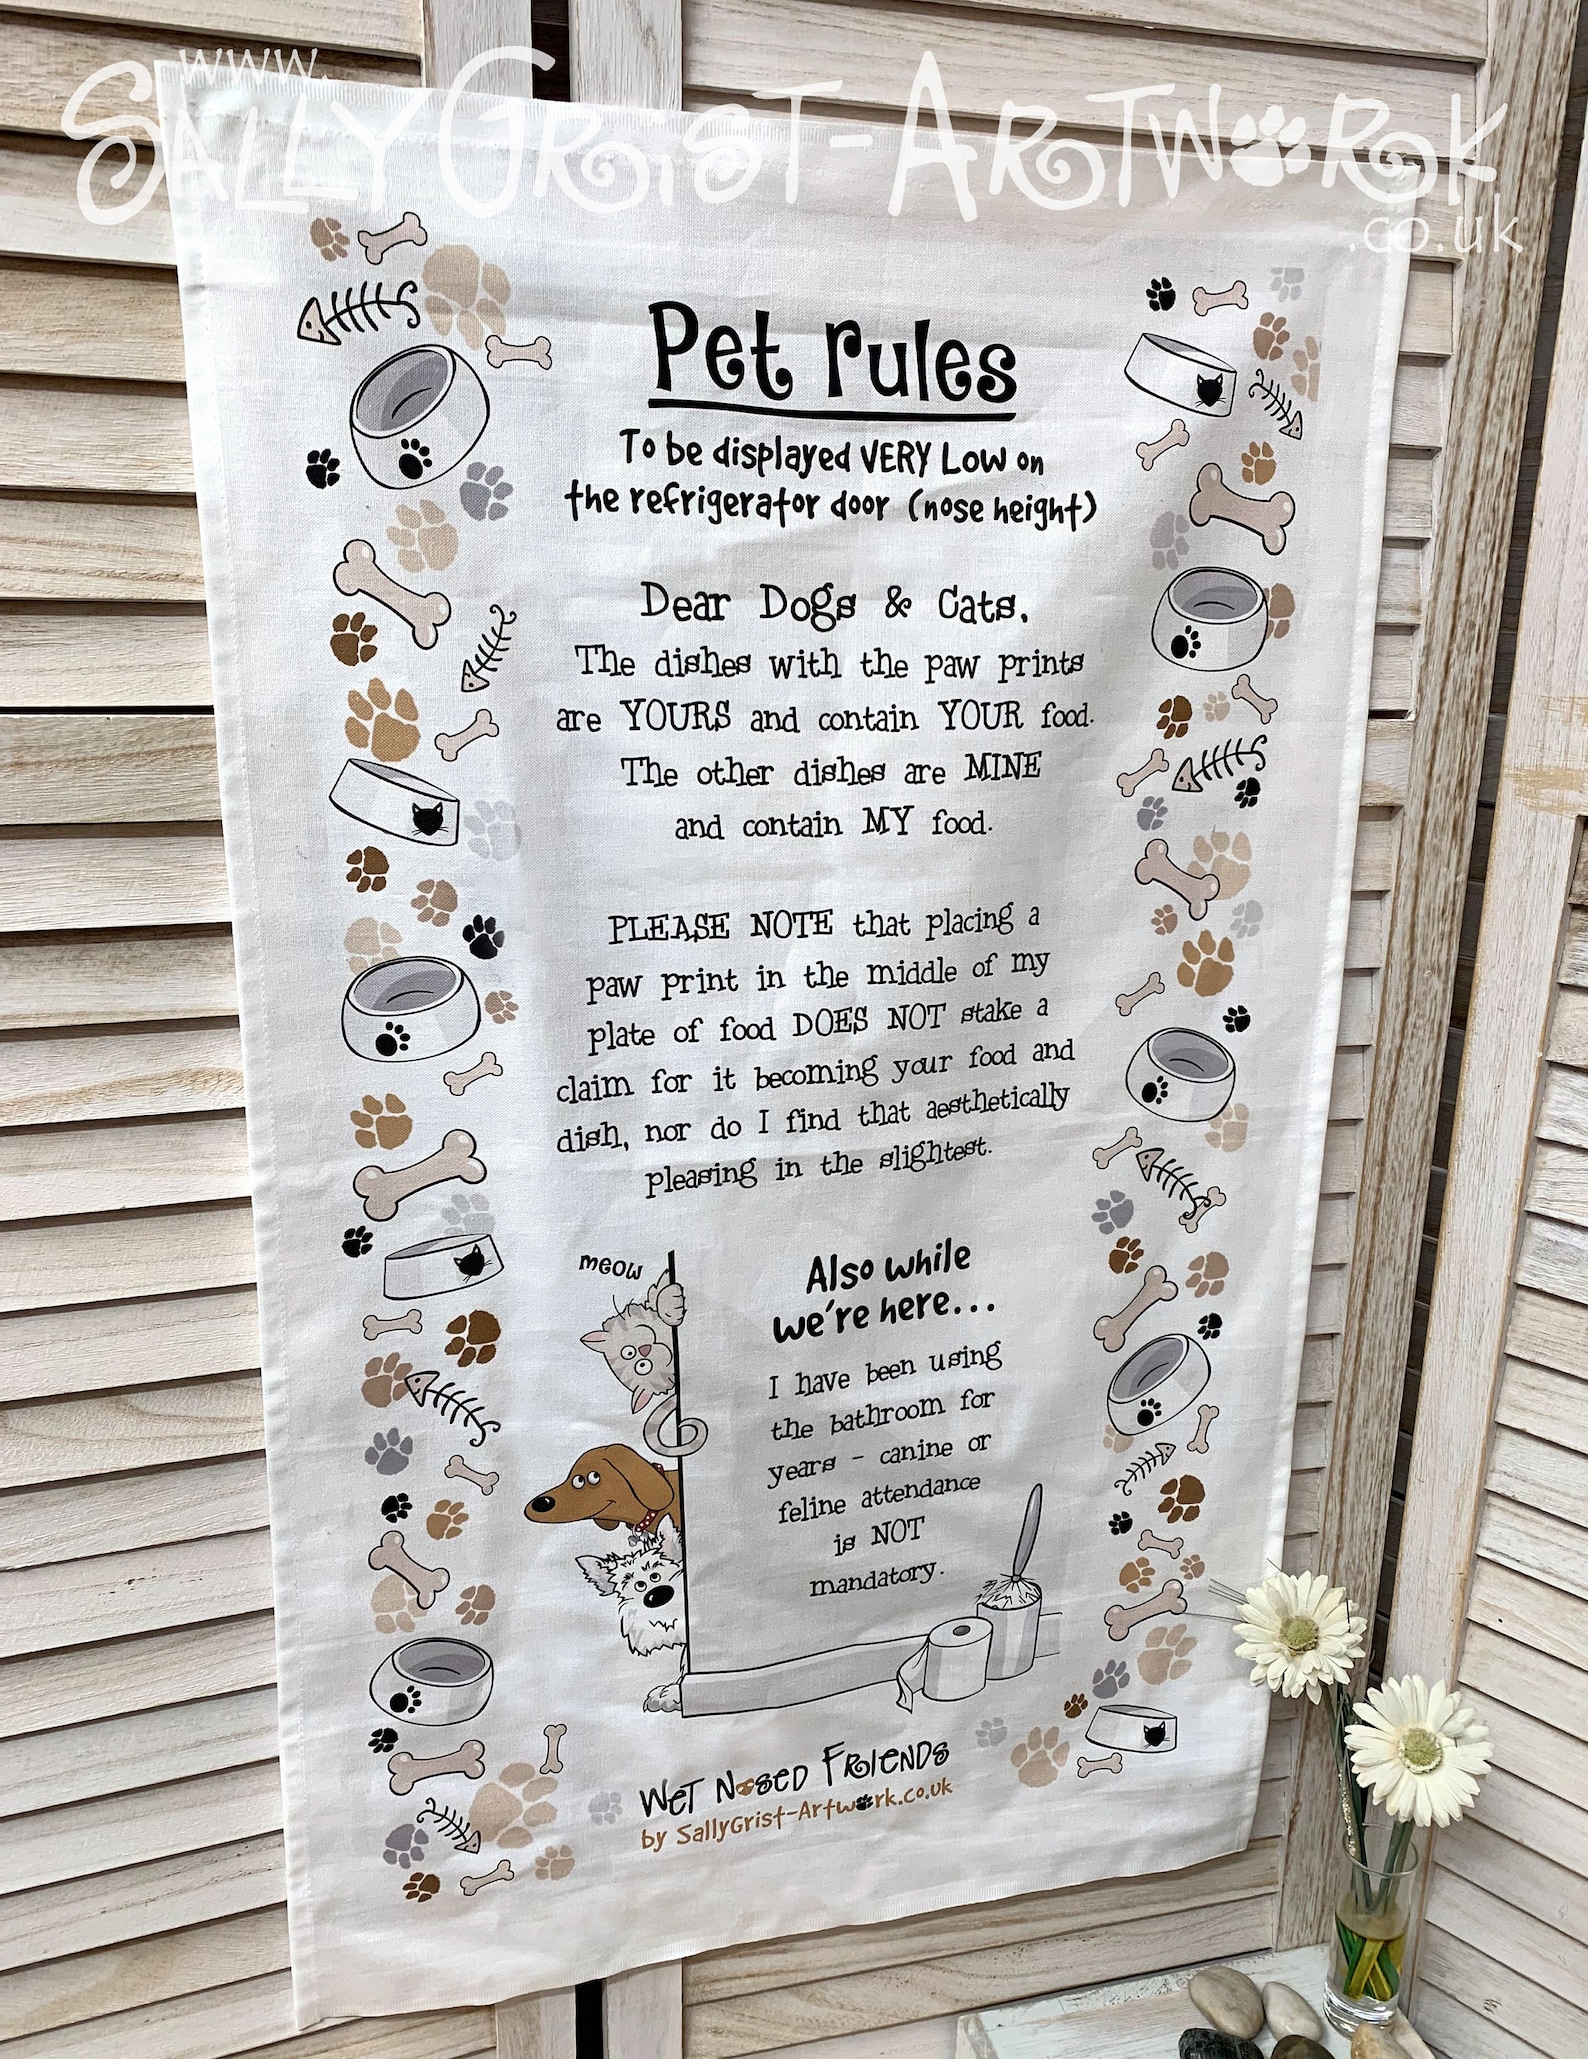 www.
SallyGrist-Artwork
.co.uk
Pet rules
To be displayed VERY Low on
the refrigerator door (nose height)
Dear Dogs & Cats,
The dishes with the paw prints
are YOURS and contain YOUR food.
The other dishes are MINE
and contain MY food.
PLEASE NOTE that placing a
paw print in the middle of my
plate of food DOES NOT stake a
claim for it becoming your food and
dish, nor do I find that aesthetically
pleasing in the slightest.
meow
Also while
we're here...
I have been using
the bathroom for
years - canine or
feline attendance
is NOT
mandatory.
Wet Nosed Friends
by SallyGrist-Artwork.co.uk